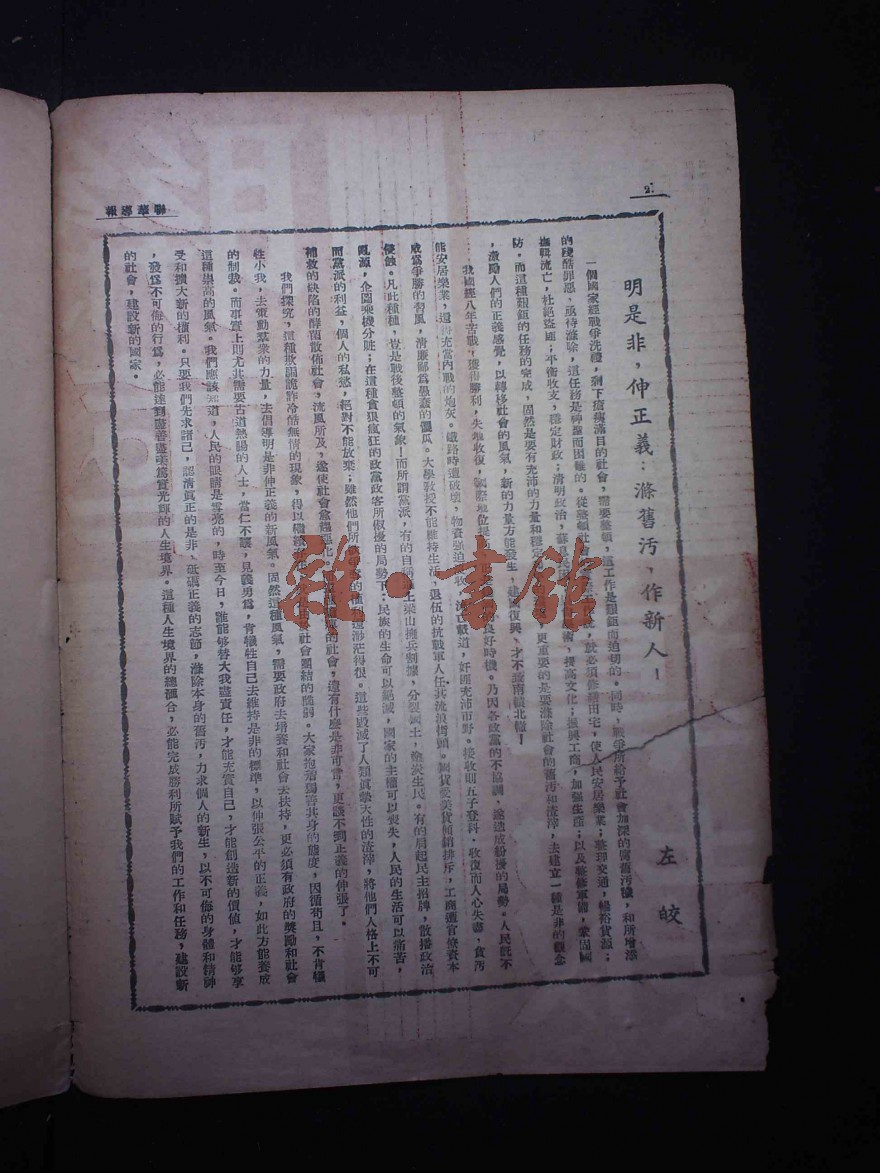 聯華導報
2.
明是非，伸正義；滌舊污，作新人！
左皎
一個國家經戰爭洗禮，剩下瘡痍滿目的社會，需要整頓，這工作是艱鉅而迫切的。同時，戰爭所給予社會加深的舊污穢，和所增添
的殘酷罪惡，亟待滌除，這任務是神聖而困難的。從整頓社會，就必須修繕田宅，使人民安居樂業；整理交通，暢裕貨源；
撫輯流亡，杜絕盜匪；平衡收支，穩定財政；清明政治，蘇息民，提高文化；振興工商，加强生產；以及整修軍備，鞏固國
防。而這種艱鉅的任務的完成，固然是要有充沛的力量和穩定，更重要的是要滌除社會的舊污和渣滓，去建立一種是非的觀念
，激勵人們的正義感覺，以轉移社會的風氣，新的力量方能發生，建國復興，才不致南轅北轍！
我國經八年苦戰，獲得勝利，失地收復，國際地位提，良好時機。乃因各政黨的不協調，遂造成紛擾的局勢。人民既不
能安居樂業，還得充當內戰的炮灰。鐵路時遭破壞，物資强迫收，流亡載道，奸匪充沛市野。接收則五子登科，收復而人心失盡，貪污
成爲爭勝的習風，清廉鄙爲愚蠢的傻瓜。大學教授不能維持生活，退伍的抗戰軍人任其流浪街頭。國貨受美貨傾銷排斥，工商遭官僚資本
侵蝕。凡此種種，豈是戰後整頓的氣象！而所謂黨派，有的自稱上梁山擁兵割據，分裂國土，塗炭生民。有的肩起民主招牌，散播政治
亂源，企圖乘機分贓；在這種貪狼瘋狂的政黨政客所俶擾的局勢下：民族的生命可以絕滅，國家的主權可以喪失，人民的生活可以痛苦，
而黨派的利益，個人的私慾，絕對不能放棄；雖然他們所的種種還渺茫得很。這些毀滅了人類眞摯天性的渣滓，將他們人格上不可
補救的缺陷的酵菌散佈社會，流風所及，遂使社會愈趨惡化，的社會，還有什麼是非可言，更談不到正義的伸張了。
我們探究，這種欺騙詭詐冷酷無情的現象，得以繼續，社會團結的脆弱。大家抱着獨善其身的態度，因循苟且，不肯犧
牲小我，去策動羣衆的力量，去倡導明是非伸正義的新風氣。固然這種風氣，需要政府去培養和社會去扶持，更必須有政府的獎勵和社會
的制裁。而事實上則尤其需要古道熱腸的人士，當仁不讓，見義勇爲，肯犧牲自己去維持是非的標準，以伸張公平的正義，如此方能養成
這種崇高的風氣。我們應該知道，人民的眼睛是雪亮的，時至今日，誰能够替大我盡責任，才能充實自己，才能創造新的價值，才能够享
受和擴大新的權利。只要我們先求諸己，認清眞正的是非、砥礪正義的志節，滌除本身的舊污，力求個人的新生，以不可侮的身體和精神
，發爲不可侮的行爲，必能達到盡善盡美篤實光輝的人生境界。這種人生境界的總滙合，必能完成勝利所賦予我們的工作和任務，建設新
的社會，建設新的國家。
雜·書館